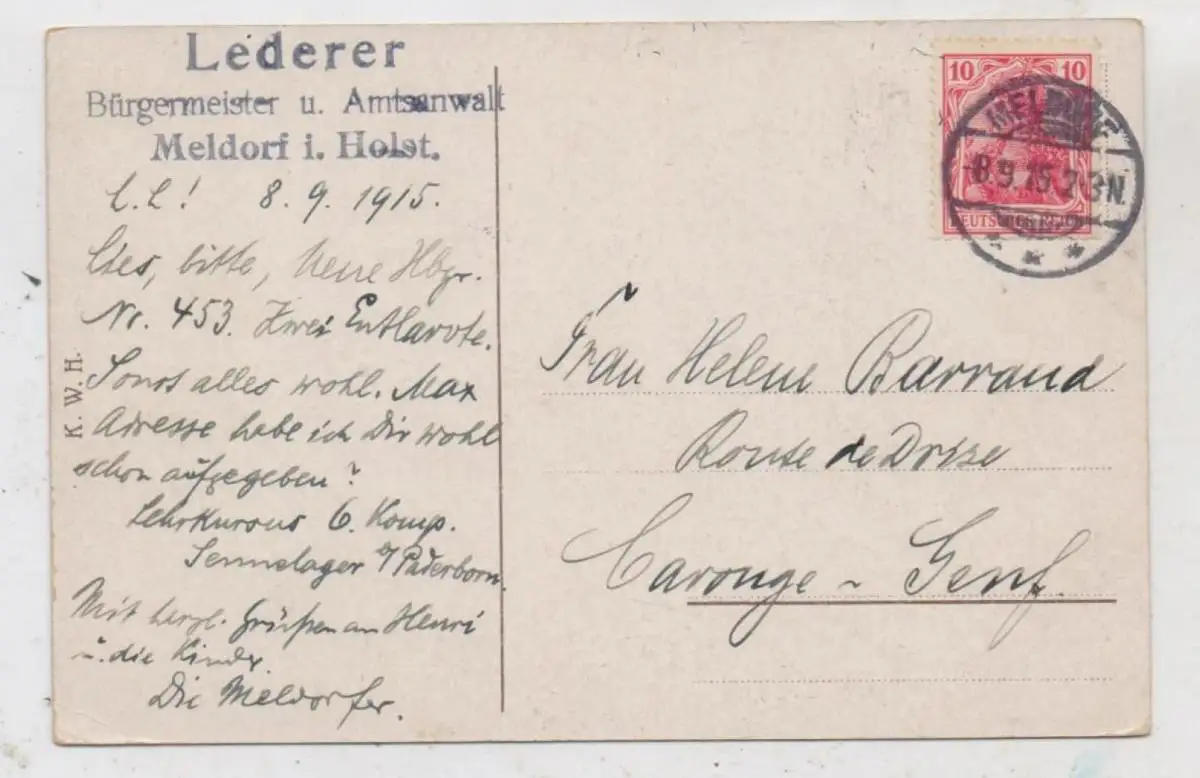 Lederer
Bürgermeister u. Amtsanwalt
Meldorf i. Holst.
L.L! 8.9.1915.
Lies, bitte, neue Hbgr.
Nr. 453. Zwei Entlarvte.
Sonst alles wohl. Max
Adresse habe ich Dir wohl
schon aufgegeben?
Lehrkursus 6. Komp.
Sennelager b/ Paderborn.
Mit herzl. Grüßen an Henri
u. die Kinder
Die Meldorfer.
K. W. H.
10 10
DEUTSCHES REICH
MELDORF
-8.9.15.2-3N.
Frau Helene Barraud
Route de Drize
Carouge - Genf.